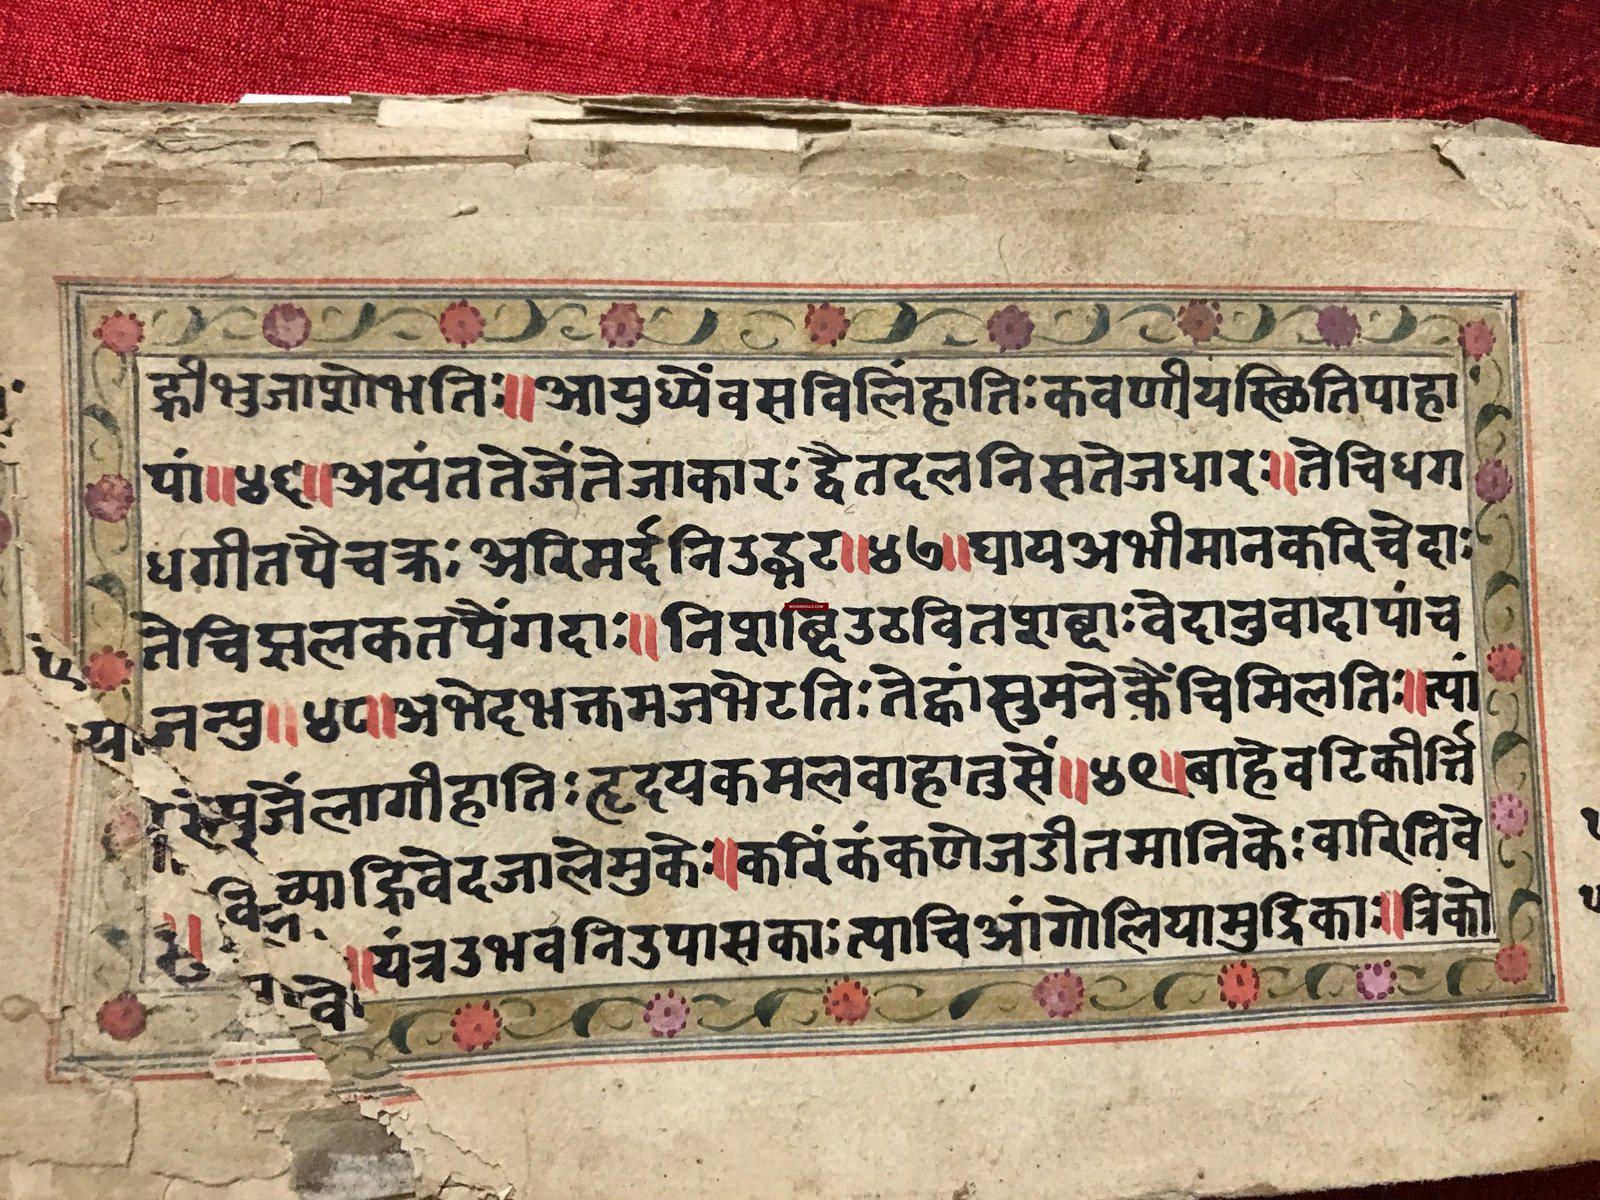 ङ्कीभुजाशोभति:॥आयुध्यैंवसविलिंहाति:कवणीयस्छितिपाहा
पां॥४६॥अत्पंततेजेंतेजाकार:द्वैतदलनिसतेजधार:॥तेचिधग
धगीतपैचक्र:अरिमर्दनिउद्भट॥४७॥घायअभीमानकरिचेदा:
तेचिझलकतपैंगदा:॥निशब्दिउठवितशब्दा:वेदानुवादापांच
जन्यु॥४८॥अभेदभक्तमजभेटति:तेह्वांसुमनेकैंचिमिलति:॥त्पां
जेंलागीहाति:हृदयकमलवाहातसें॥४९॥बाहेवटिकीर्त्ति
वेदजालेमुके:॥करिंकंकणेजडीतमानिके:वारितिवे
॥यंत्रउभवनिउपासका:त्पाचिआंगोलियामुद्रिका:॥त्रिको
WOVENSOULS.COM